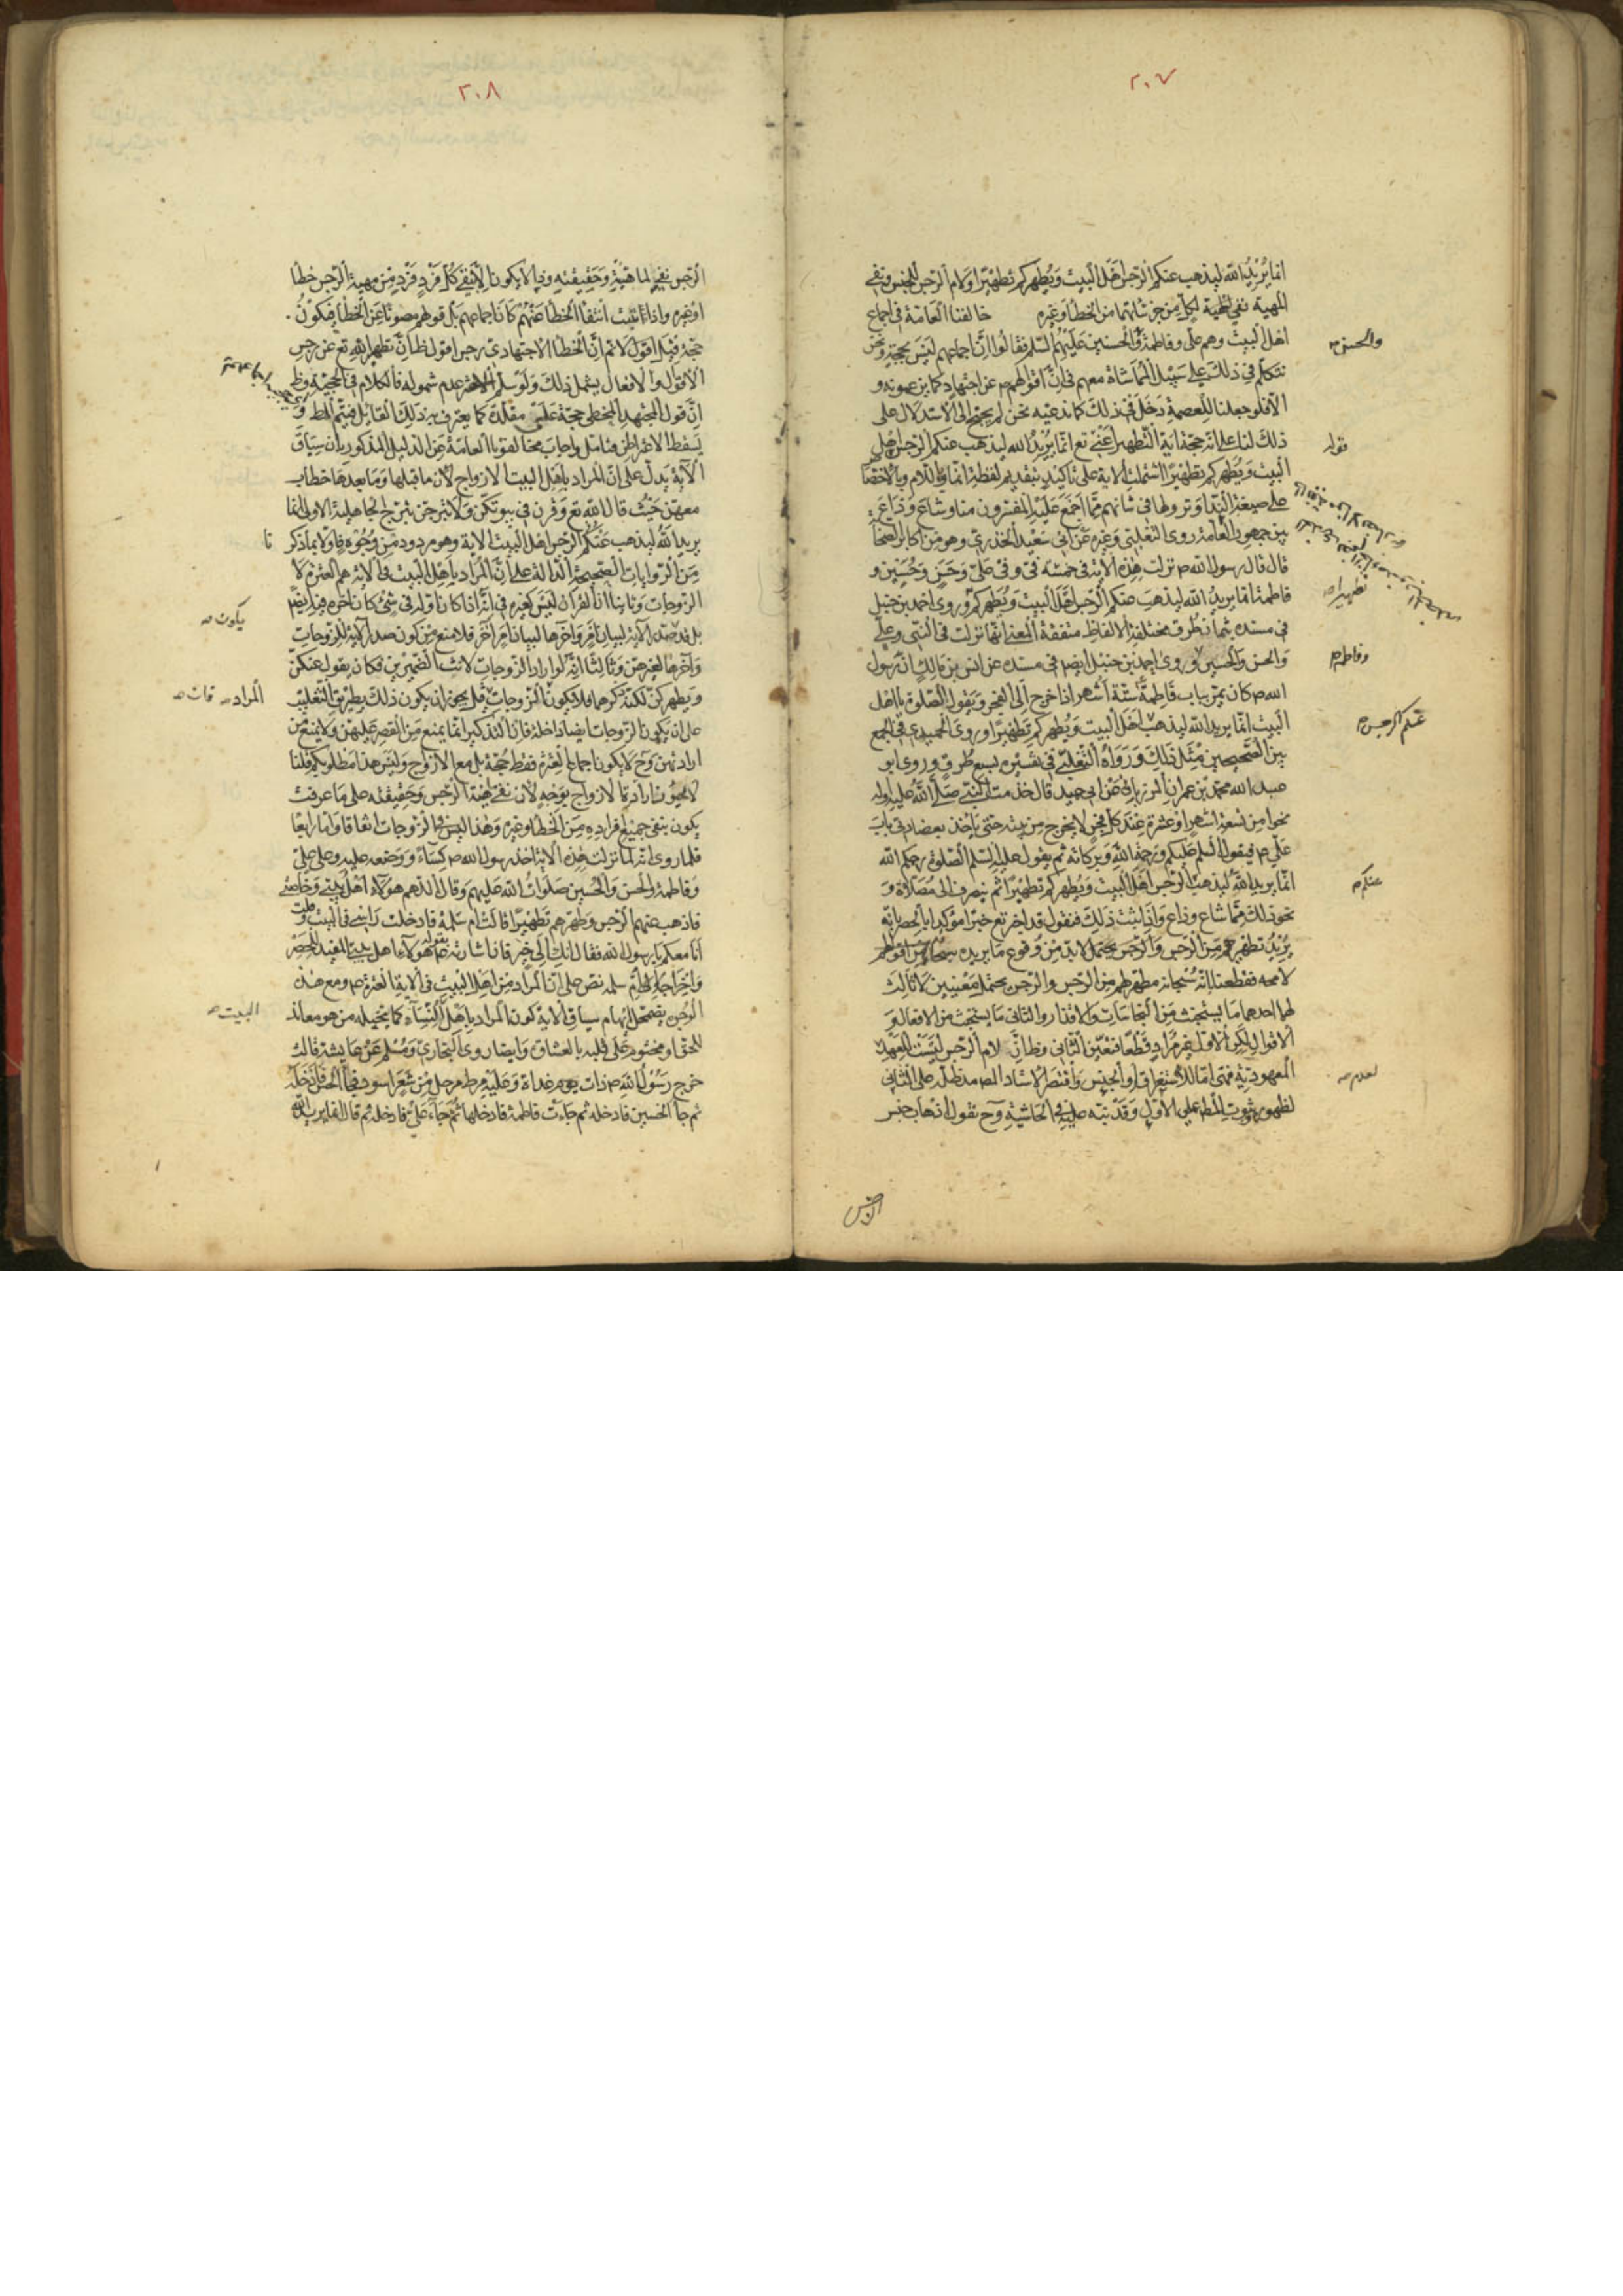 ٢٠٧
انما يريد الله ليذهب عنكم الرجس اهل البيت ويطهركم تطهيرا ولام الرجس للجنس ونفى
المهية نفى لكل من جزئياتها من الخطأ وغيره خالفنا العامة فى اجماع
اهل البيت وهم على وفاطمة والحسنين عليهم السلم فقالوا ان اجماعهم ليس بحجة ونحن
والحسن
نتكلم فى ذلك على سبيل المماشاة معهم فى ان اقوالهم عن اجتهاد كما يزعمونه و
الا فلو جعلنا للعصمة دخل فى ذلك كما ندعيه نحن لم يحتج الى الاستدلال على
ذلك لنا على انه حجة اية التطهير اعنى قوله تع انما يريد الله ليذهب عنكم الرجس اهل
قوله
البيت ويطهركم تطهيرا اشتملت الاية على تاكيد بتقديم لفظة انما واللام وبالاختصا
على صيغة النداء ونزولها فى شانهم مما اجمع عليه المفسرون منا وشاع وذاع
بين جمهور العامة روى الثعلبى وغيره عن ابى سعيد الخدرى وهو من اكابر الصحابة
قال قال رسول الله ص نزلت هذه الاية فى خمسة فى وفى على وحسن وحسين و
فاطمة انما يريد الله ليذهب عنكم الرجس اهل البيت ويطهركم وروى احمد بن حنبل
تطهيرا
فى مسنده ثمان طرق مختلفة الالفاظ متفقة المعنى انها نزلت فى النبى وعلى
والحسن والحسين وروى احمد بن حنبل ايضا فى مسنده عن انس بن مالك ان رسول
وفاطمة
الله ص كان يمر بباب فاطمة ستة اشهر اذا خرج الى الفجر ويقول الصلوة يا اهل
البيت انما يريد الله ليذهب اهل البيت ويطهركم تطهيرا وروى الحميدى فى الجمع
عنكم الرجس
بين الصحيحين مثل ذلك ورواه الثعلبى فى تفسيره بسبع طرق وروى ابو
عبد الله محمد بن عمران المرزبانى عن ابى قال خدمت النبى صلى الله عليه واله
نحوا من تسعة اشهر او عشرة عند كل فجر لا يخرج من بيته حتى ياخذ بعضادتى باب
على ص فيقول السلم عليكم ورحمة الله وبركاته ثم يقول الصلوة رحمكم الله
انما يريد الله ليذهب الرجس اهل البيت ويطهركم تطهيرا ثم ينصرف الى مصلاه و
عنكم
نحو ذلك مما شاع وذاع واذا ثبت ذلك فنقول قد اخبر تع خبرا مؤكدا بالحصر بانه
يريد تطهيرهم من الرجس والرجس يحتمل لابد من وقوع ما يريده سبحانه
لا محه فقطعنا انه سبحانه مطهرهم من الرجس والرجس يحتمل معنيين لا ثالث
لهما احدهما ما يستخبث من النجاسات والاقذار والثانى ما يستخبث من الافعال و
الاقوال لكن الاول غير مراد قطعا فتعين الثانى وظ ان لام الرجس ليست للعهد
المعهودية فهى اما للاستغراق او الجنس واقتصر الاستاد المص مدظله على الثانى
لعدم
لظهور ثبوت المط على الاول وقد نبه عليه فى الحاشية وح نقول اذهاب جنس
الرجس
٢٠٨
الرجس نفى لماهيته وحقيقته وذا لا يكون الا بنفى كل فرد فرد من مهية الرجس خطأ
او غيره واذا ثبت انتفا الخطأ عنهم كان اجماعهم بل قولهم مصونا عن الخطأ فيكون
حجة فيه اقول لا نم ان الخطا الاجتهادى رجس اقول ظ ان تطهير الله تع عن رجس
الاقوال والافعال يشمل ذلك ولو سلم عدم شموله فالكلام فى الحجية وظ
ان قول المجتهد المخطى حجة على مقلده كما يعترف به ذلك القائل فيتم المط و
يسقط الاعتراض فتامل واجاب مخالفونا العامة عن الدليل المذكور بان سياق
الاية يدل على ان المراد باهل البيت الازواج لان ما قبلها وما بعدها خطاب
معهن حيث قال الله تع وقرن فى بيوتكن ولا تبرجن تبرج الجاهلية الاولى انما
يريد الله ليذهب عنكم الرجس اهل البيت الاية وهو مردود من وجوه فاولا بما ذكر
نا
من الروايات الصحيحة الدالة على ان المراد باهل البيت فى الاية هم العترة لا
الزوجات وثانيا ان القران ليس كغيره فى انه اذا كان اوله فى شئ كان اخره فيه ايضا
بل قد الاية لبيان امر واخرها لبيان امر اخر فلا منع من كون صدر الاية للزوجات
يكون
واخرها لغيرهن وثالثا انه لو اراد الزوجات لانث الضميرين فكان يقول عنكن
ويطهركن لكنه ذكرهما فلا يكون الزوجات قيل يجوز ان يكون ذلك بطريق التغليب
المراد فان
على ان يكون الزوجات ايضا داخلة فان التذكير انما يمنع من القصر عليهن ولا يمنع من
ارادتهن وح لا يكون اجماع العترة فقط حجة بل مع الازواج وليس هذا مطلوبكم قلنا
لا يجوز ارادة الازواج بوجه لان نفى مهية الرجس وحقيقته على ما عرفت
يكون بنفى جميع افراده من الخطأ وغيره وهذا ليس فى الزوجات اتفاقا واما رابعا
فلما روى انه لما نزلت هذه الاية اخذ رسول الله ص كساء ووضعه عليه وعلى على
وفاطمة والحسن والحسين صلوات الله عليهم وقال اللهم هؤلاء اهل بيتى وخاصتى
فاذهب عنهم الرجس وطهرهم تطهيرا قالت ام سلمة فادخلت راسى فى البيت وقلت
انا معكم يا رسول الله فقال انك الى خير فاشارته هؤلاء اهل بيتى المفيد للحصر
واخراجه ام سلمه نص على ان المراد من اهل البيت فى الاية العترة ص ومع هذه
الوجوه يضمحل ايهام سياق الاية كون المراد باهل النساء كما تخيله من هو معاند
البيت
للحق او مختوم على قلبه بالغشاوة وايضا روى البخارى ومسلم عن عايشة قالت
خرج رسول الله ص ذات يوم غداة وعليه مرط مرجل من شعر اسود فجأ الحسن فادخله
ثم جأ الحسين فادخله ثم جاءت فاطمة فادخلها ثم جاء على فادخله ثم قال انما يريد الله